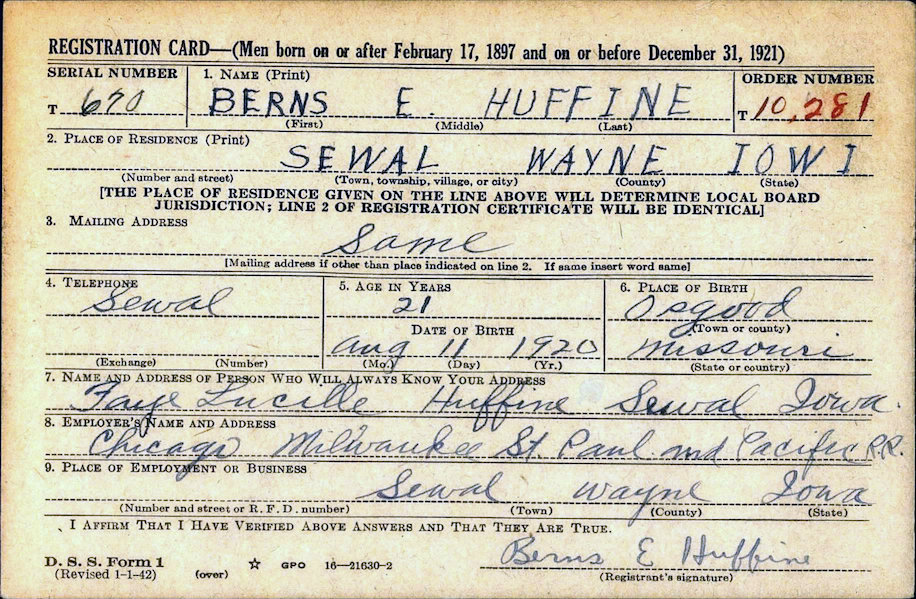 REGISTRATION CARD—(Men born on or after February 17, 1897 and on or before December 31, 1921)
SERIAL NUMBER 1. NAME (Print) ORDER NUMBER
T 670 BERNS E. HUFFINE T 10,281
(First) (Middle) (Last)
2. PLACE OF RESIDENCE (Print)
SEWAL WAYNE IOWI
(Number and street) (Town, township, village, or city) (County) (State)
[THE PLACE OF RESIDENCE GIVEN ON THE LINE ABOVE WILL DETERMINE LOCAL BOARD
JURISDICTION; LINE 2 OF REGISTRATION CERTIFICATE WILL BE IDENTICAL]
3. MAILING ADDRESS
Same
[Mailing address if other than place indicated on line 2. If same insert word same]
4. TELEPHONE 5. AGE IN YEARS 6. PLACE OF BIRTH
Sewal 21 Osgood
DATE OF BIRTH (Town or county)
Aug 11 1920 Missouri
(Exchange) (Number) (Mo.) (Day) (Yr.) (State or country)
7. NAME AND ADDRESS OF PERSON WHO WILL ALWAYS KNOW YOUR ADDRESS
Faye Lucille Huffine Sewal Iowa.
8. EMPLOYER'S NAME AND ADDRESS
Chicago Milwaukee St. Paul and Pacific R.R.
9. PLACE OF EMPLOYMENT OR BUSINESS
Sewal Wayne Iowa
(Number and street or R. F. D. number) (Town) (County) (State)
I AFFIRM THAT I HAVE VERIFIED ABOVE ANSWERS AND THAT THEY ARE TRUE.
Berns E Huffine
D. S. S. Form 1
(Revised 1-1-42) (over) ☆ GPO 16—21630-2 (Registrant's signature)